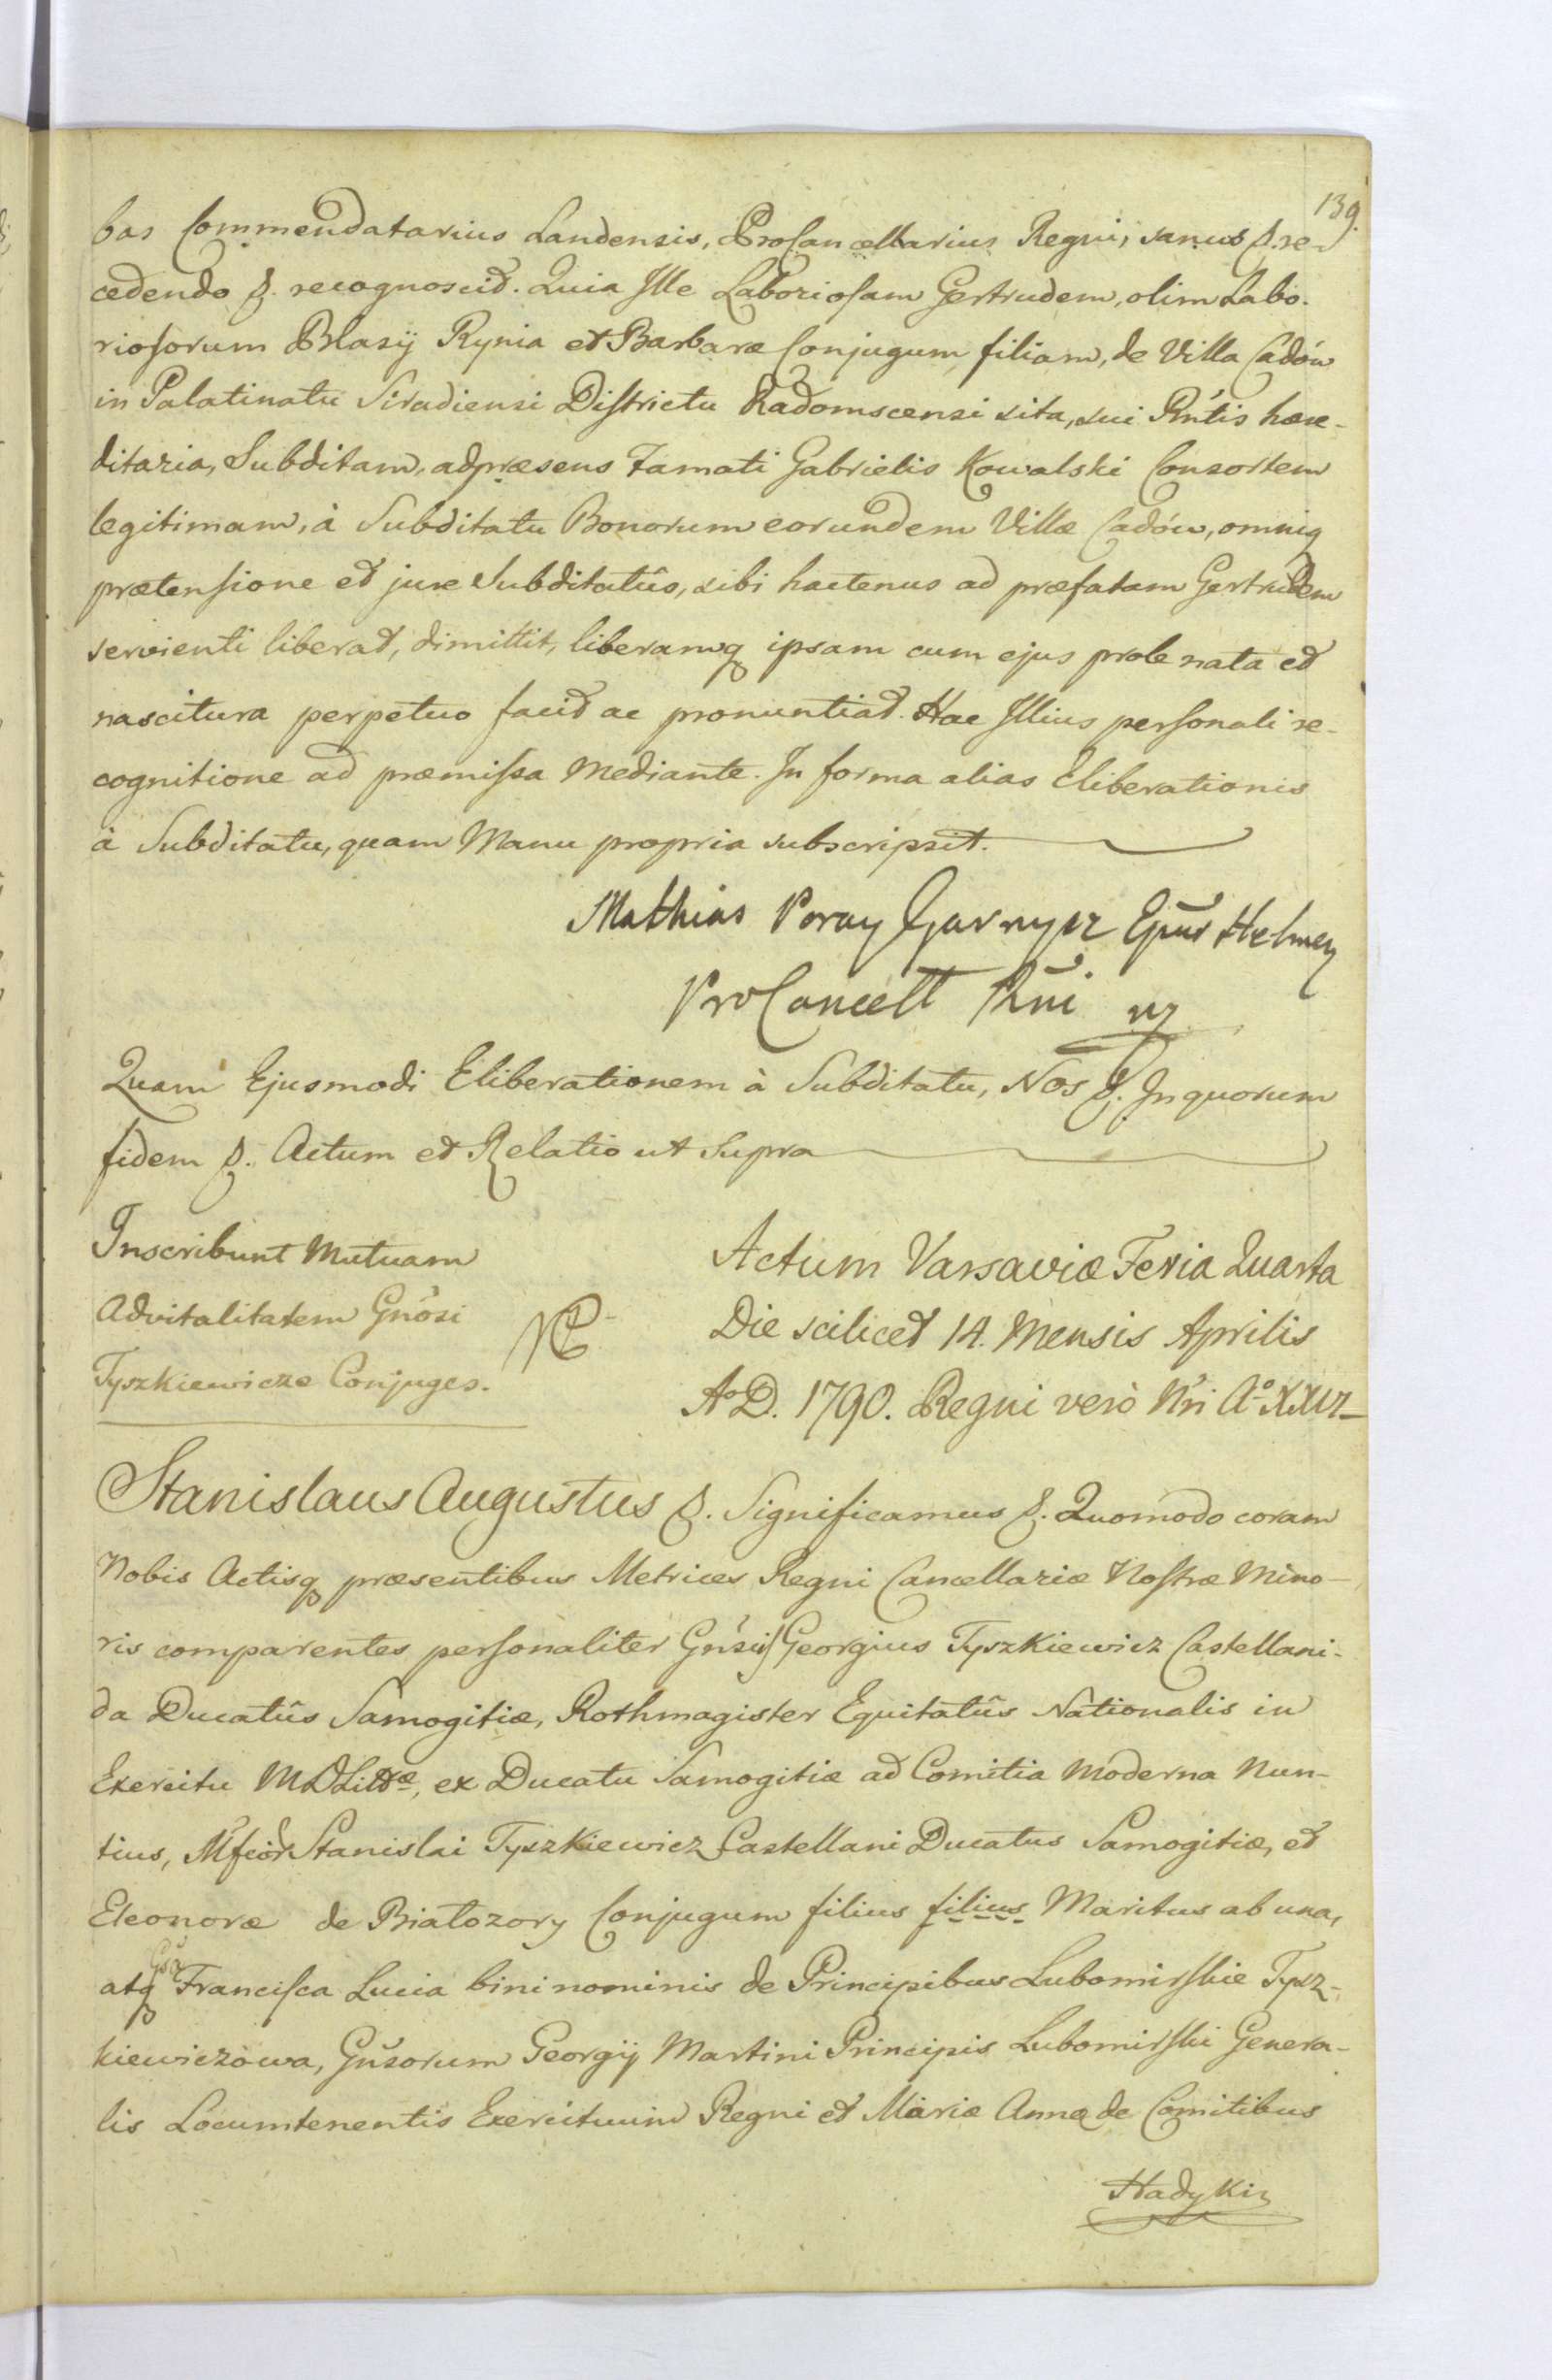 139.
bas Commendatarius Landensis, ProCancellarius Regni, sanus &. re-
cedendo &. recognoscit. Quia Ille Laboriosam Gertrudem, olim Labo-
riosorum Blasij Rynia et Barbaræ Conjugum filiam, de Villa Cadów
in Palatinatu Siradiensi Districtu Radomscensi sita, sui Rntis hære-
ditaria, Subditam, adpræsens Famati Gabrielis Kowalski Consortem
legitimam, à Subditatu Bonorum eorundem Villæ Cadów, omniq
prætensione et jure Subditatûs, sibi hactenus ad præfatam Gertrudem
servienti liberat, dimittit, liberamq ipsam cum ejus prole nata et
nascitura perpetuo facit ac pronuntiat. Hac Illius personali re-
cognitione ad præmissa Mediante. In forma alias Eliberationis
à Subditatu, quam Manu propria subscripsit.
Mathias Poray Garnysz Epūs Helmen
ProCancell Rni
Quam Ejusmodi Eliberationem à Subditatu, Nos &. In quorum
fidem &. Actum et Relatio ut Supra
Inscribunt Mutuam
Advitalitatem Gnosi
Tyszkiewicze Conjuges.
Actum Varsaviæ Feria Quarta
Die scilicet 14. Mensis Aprilis
A°D. 1790. Regni verò Nri A° XXVI
Stanislaus Augustus &. Significamus &. Quomodo coram
Nobis Actisq præsentibus Metrices Regni Cancellariæ Nostræ Mino-
ris comparentes personaliter Gnsii Georgius Tyszkiewicz Castellani-
da Ducatûs Samogitiæ, Rothmagister Equitatûs Nationalis in
Exercitu MDLittæ, ex Ducatu Samogitiæ ad Comitia Moderna Nun-
tius, Mfcor Stanislai Tyszkiewicz Castellani Ducatus Samogitiæ, et
Eleonoræ de Białozory Conjugum filius filius Maritus ab una,
atq Gsa Francisca Lucia bini nominis de Principibus Lubomirskie Tysz-
kiewiczowa, Gnsorum Georgij Martini Principis Lubomirski Genera-
lis Locumtenentis Exercituum Regni et Mariæ Annæ de Comitibus
Hadykin